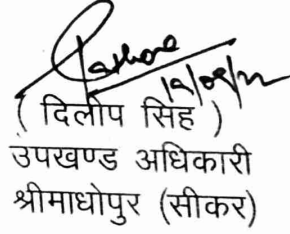 ( दिलीप सिंह )
उपखण्ड अधिकारी
श्रीमाधोपुर (सीकर)